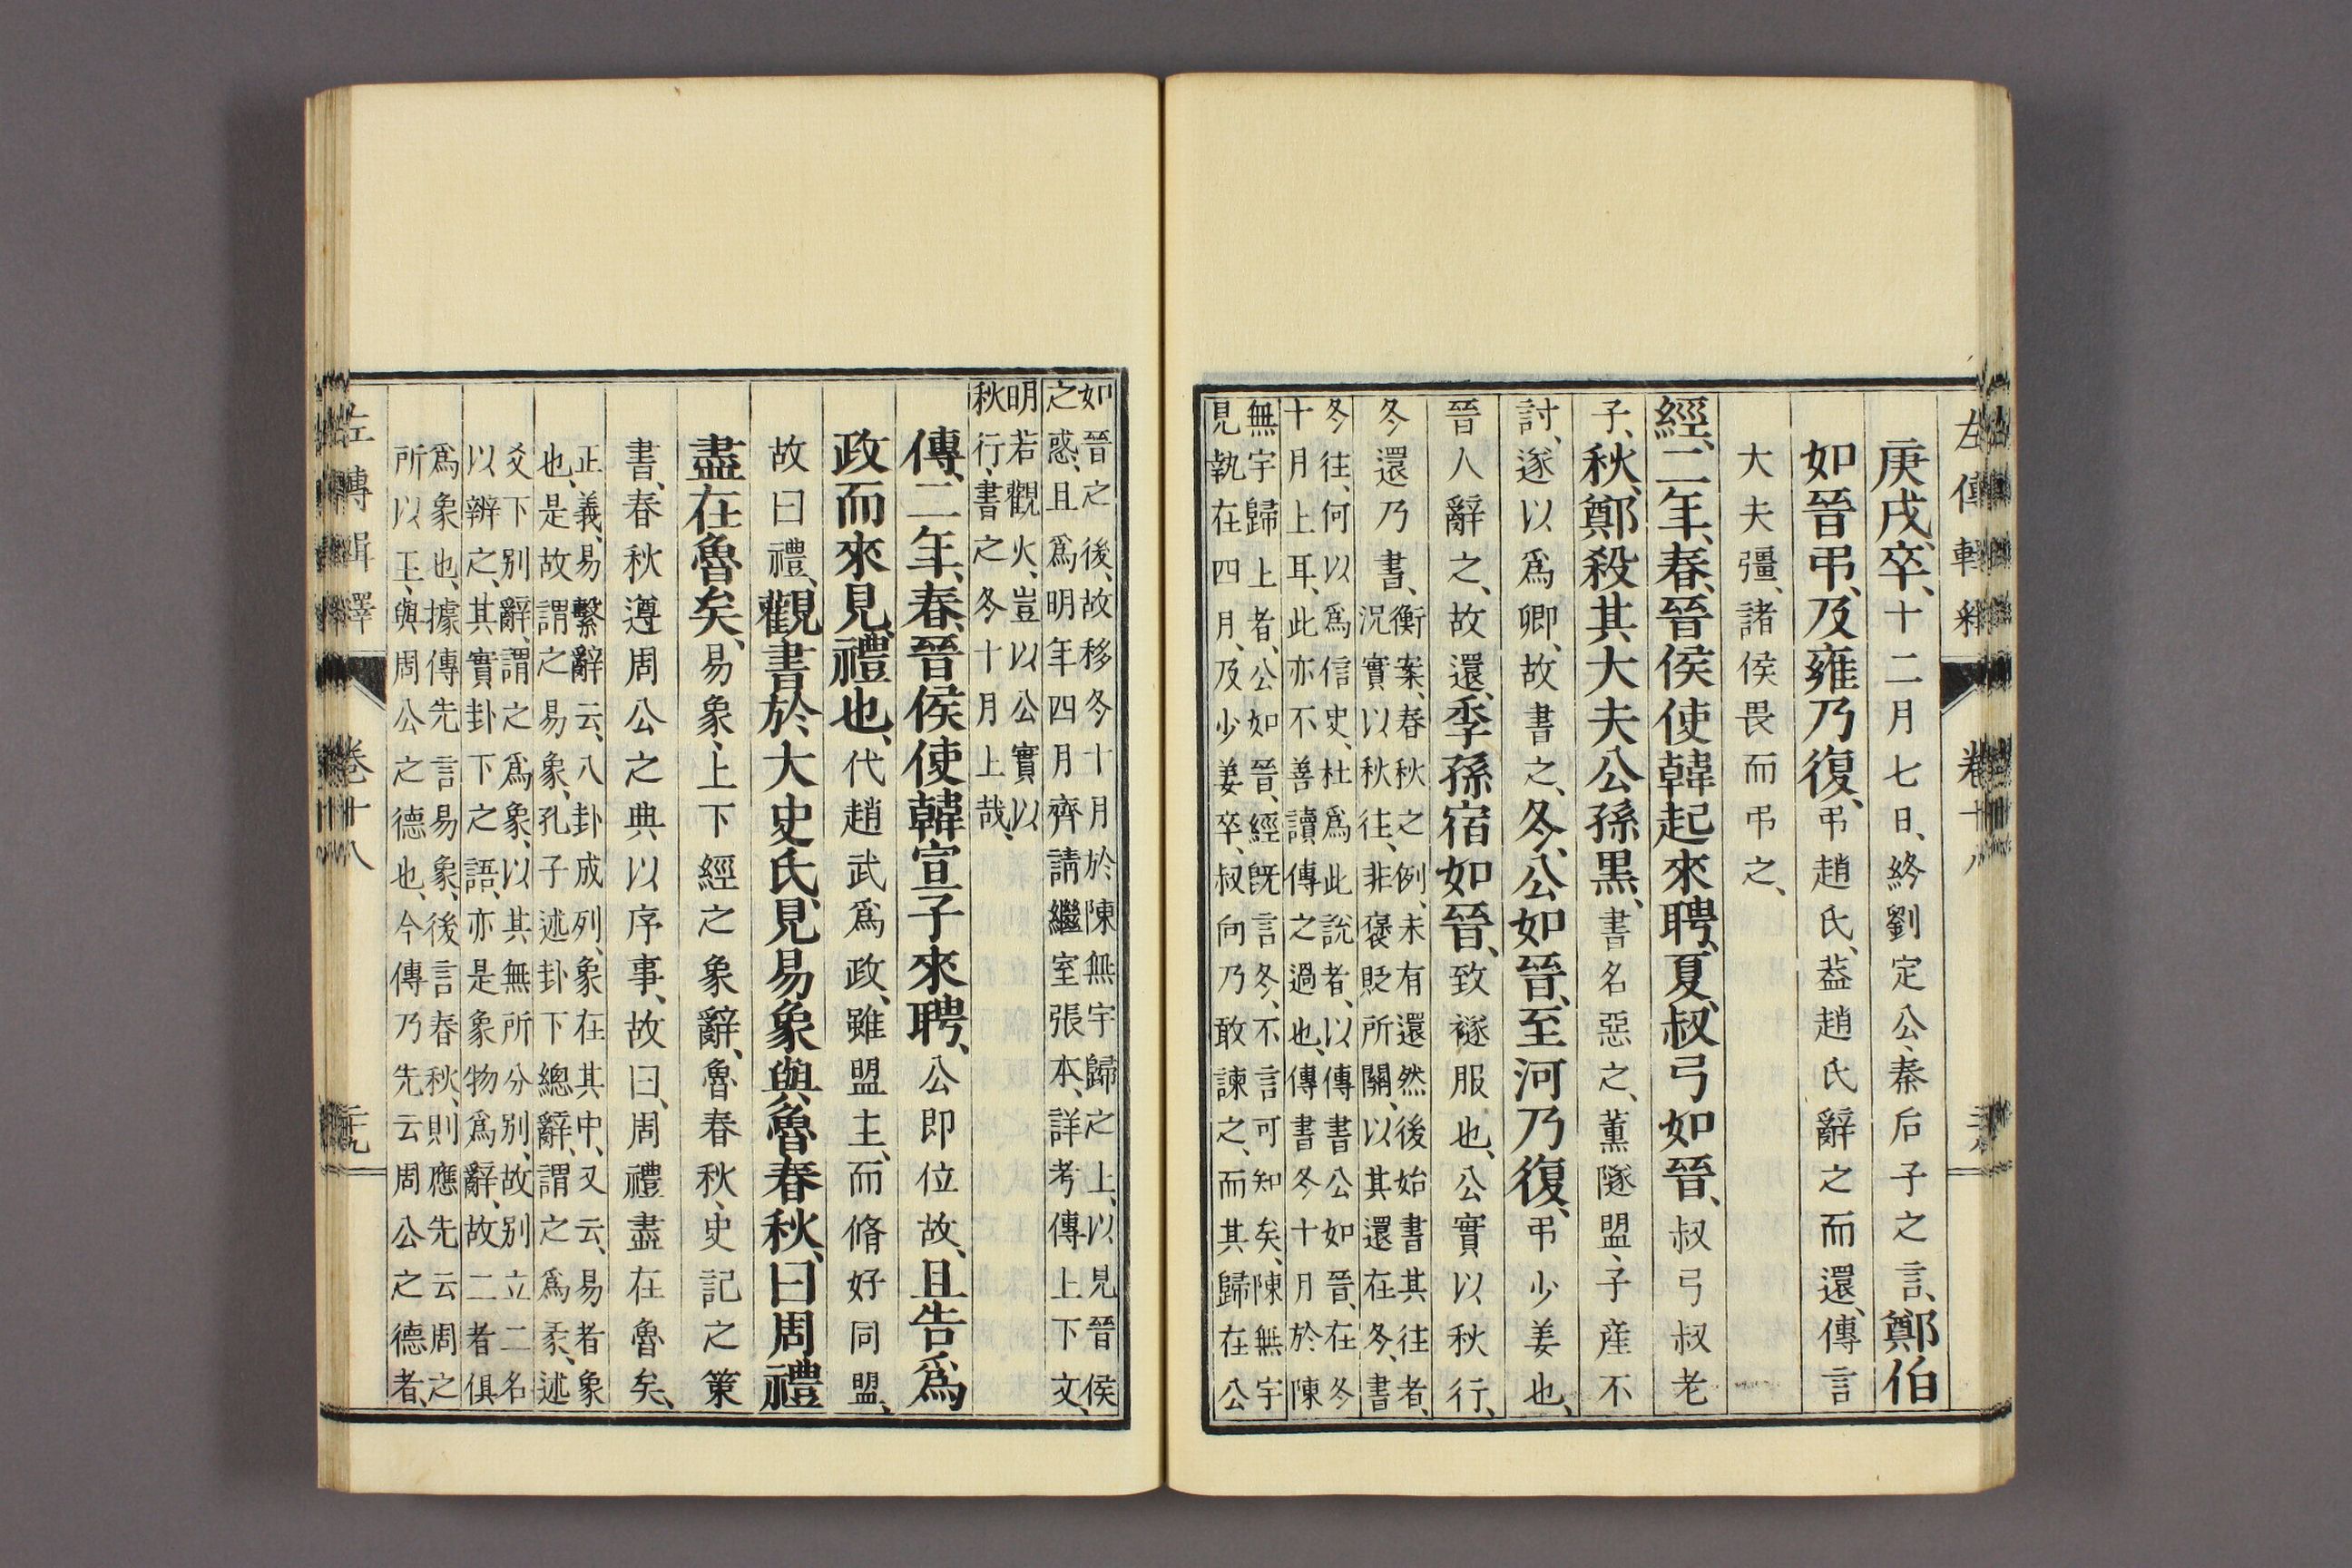 庚戌、卒、十二月七日、終劉定公、秦后子之言、鄭伯
如晉弔、及雍乃復、弔趙氏、葢趙氏辭之而還、傳言
大夫彊、諸侯畏而弔之、
經、二年、春、晉侯使韓起來聘、夏、叔弓如晉、叔弓叔老
子、秋、鄭殺其大夫公孫黑、書名惡之、薰隧盟、子產不
討、遂以爲卿、故書之、冬、公如晉、至河乃復、弔少姜也、
晉人辭之、故還、季孫宿如晉、致襚服也、公實以秋行、
冬還乃書、衡案、春秋之例、未有還然後始書其往者、
況實以秋往、非褒貶所關、以其還在冬、書
冬往、何以爲信史、杜爲此說者、以傳書公如晉、在冬
十月上耳、此亦不善讀傳之過也、傳書冬十月於陳
無宇歸上者、公如晉、經旣言冬、不言可知矣、陳無宇
見執在四月、及少姜卒、叔向乃敢諫之、而其歸在公
如晉之後、故移冬十月於陳無宇歸之上、以見晉侯
之惑、且爲明年四月齊請繼室張本、詳考傳上下文、
明若觀火、豈以公實以
秋行、書之冬十月上哉、
傳、二年、春、晉侯使韓宣子來聘、公卽位故、且告爲
政而來見、禮也、代趙武爲政、雖盟主、而脩好同盟、
故曰禮、觀書於大史氏、見易象與魯春秋、曰周禮
盡在魯矣、易象、上下經之象辭、魯春秋、史記之策
書、春秋遵周公之典以序事、故曰、周禮盡在魯矣、
正義、易繫辭云、八卦成列、象在其中、又云、易者象
也、是故謂之易象、孔子述卦下總辭、謂之爲彖、述
爻下別辭、謂之爲象、以其無所分別、故別立二名
以辨之、其實卦下之語、亦是象物爲辭、故二者俱
爲象也、據傳先言易象、後言春秋、則應先云周之
所以王、與周公之德也、今傳乃先云周公之德者、
左傳輯釋
卷十八